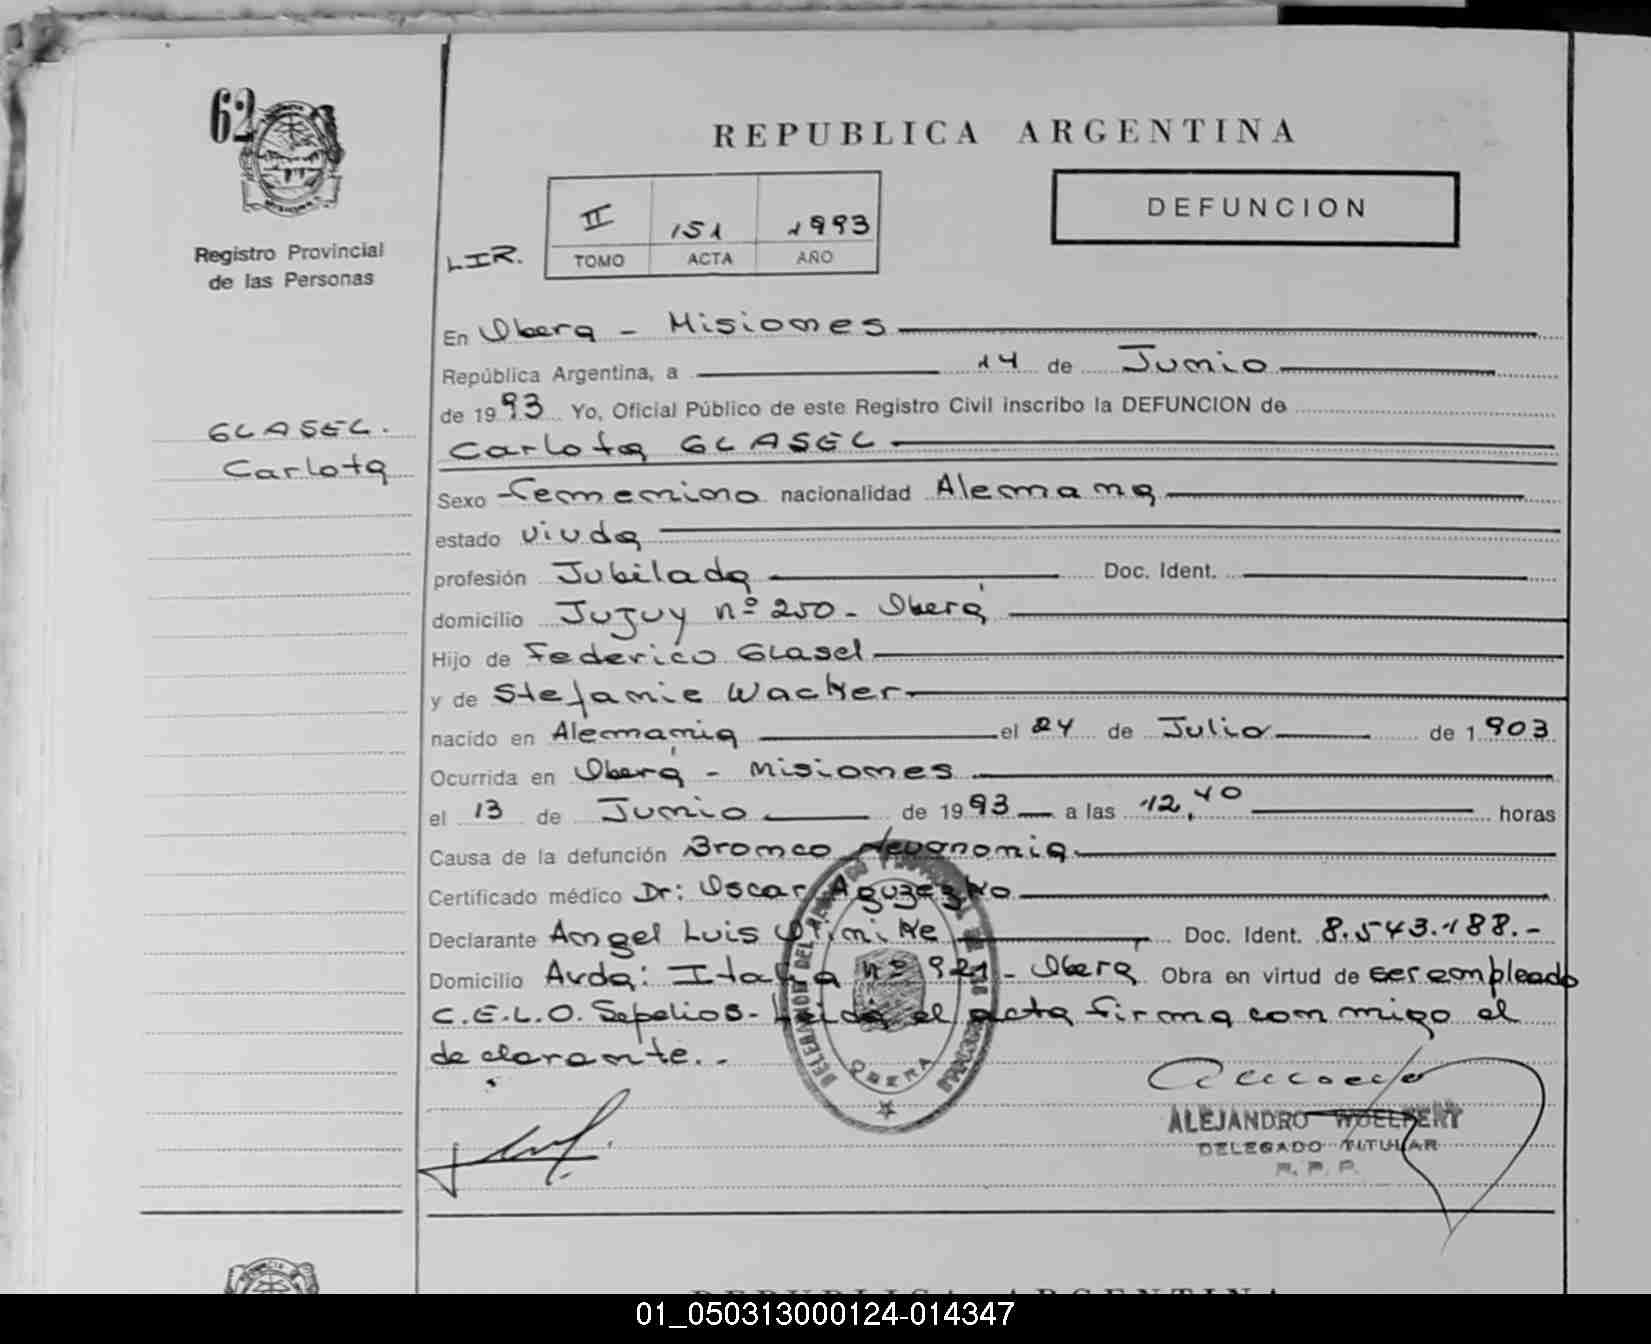 62
REPUBLICA ARGENTINA
DEFUNCION
II 151 1993
TOMO ACTA AÑO
LIR.
Registro Provincial
de las Personas
GLASEL.
Carlota
En Obera - Misiones
República Argentina, a 14 de Junio
de 1993 Yo, Oficial Público de este Registro Civil inscribo la DEFUNCION de
Carlota GLASEL
Sexo Femenino nacionalidad Alemana
estado viuda
profesión Jubilada Doc. Ident.
domicilio Jujuy nº 250 - Oberá
Hijo de Federico Glasel
y de Stefanie Wacker
nacido en Alemania el 24 de Julio de 1903
Ocurrida en Oberá - Misiones
el 13 de Junio de 1993 a las 12,40 horas
Causa de la defunción Bronco Neumonia
Certificado médico Dr: Oscar
Declarante Angel Luis Doc. Ident. 8.543.188.-
Domicilio Avda: Italia nº 921 - Oberá Obra en virtud de ser empleado
C.E.L.O. Sepelios - Leida el acta firma conmigo el
declarante..
DELEGACION DEL
OBERA
ALEJANDRO WOELFERT
DELEGADO TITULAR
R. P. P.
REPUBLICA ARGENTINA
01_050313000124-014347